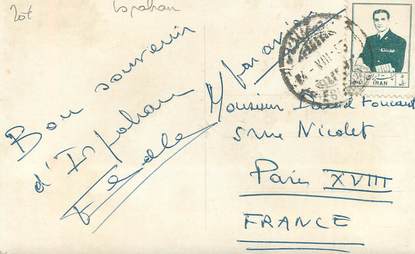 Ispahan
Bon souvenir
d'Ispahan
par avion
IRAN
Monsieur Foucault
5 rue Nicolet
Paris XVIII
FRANCE